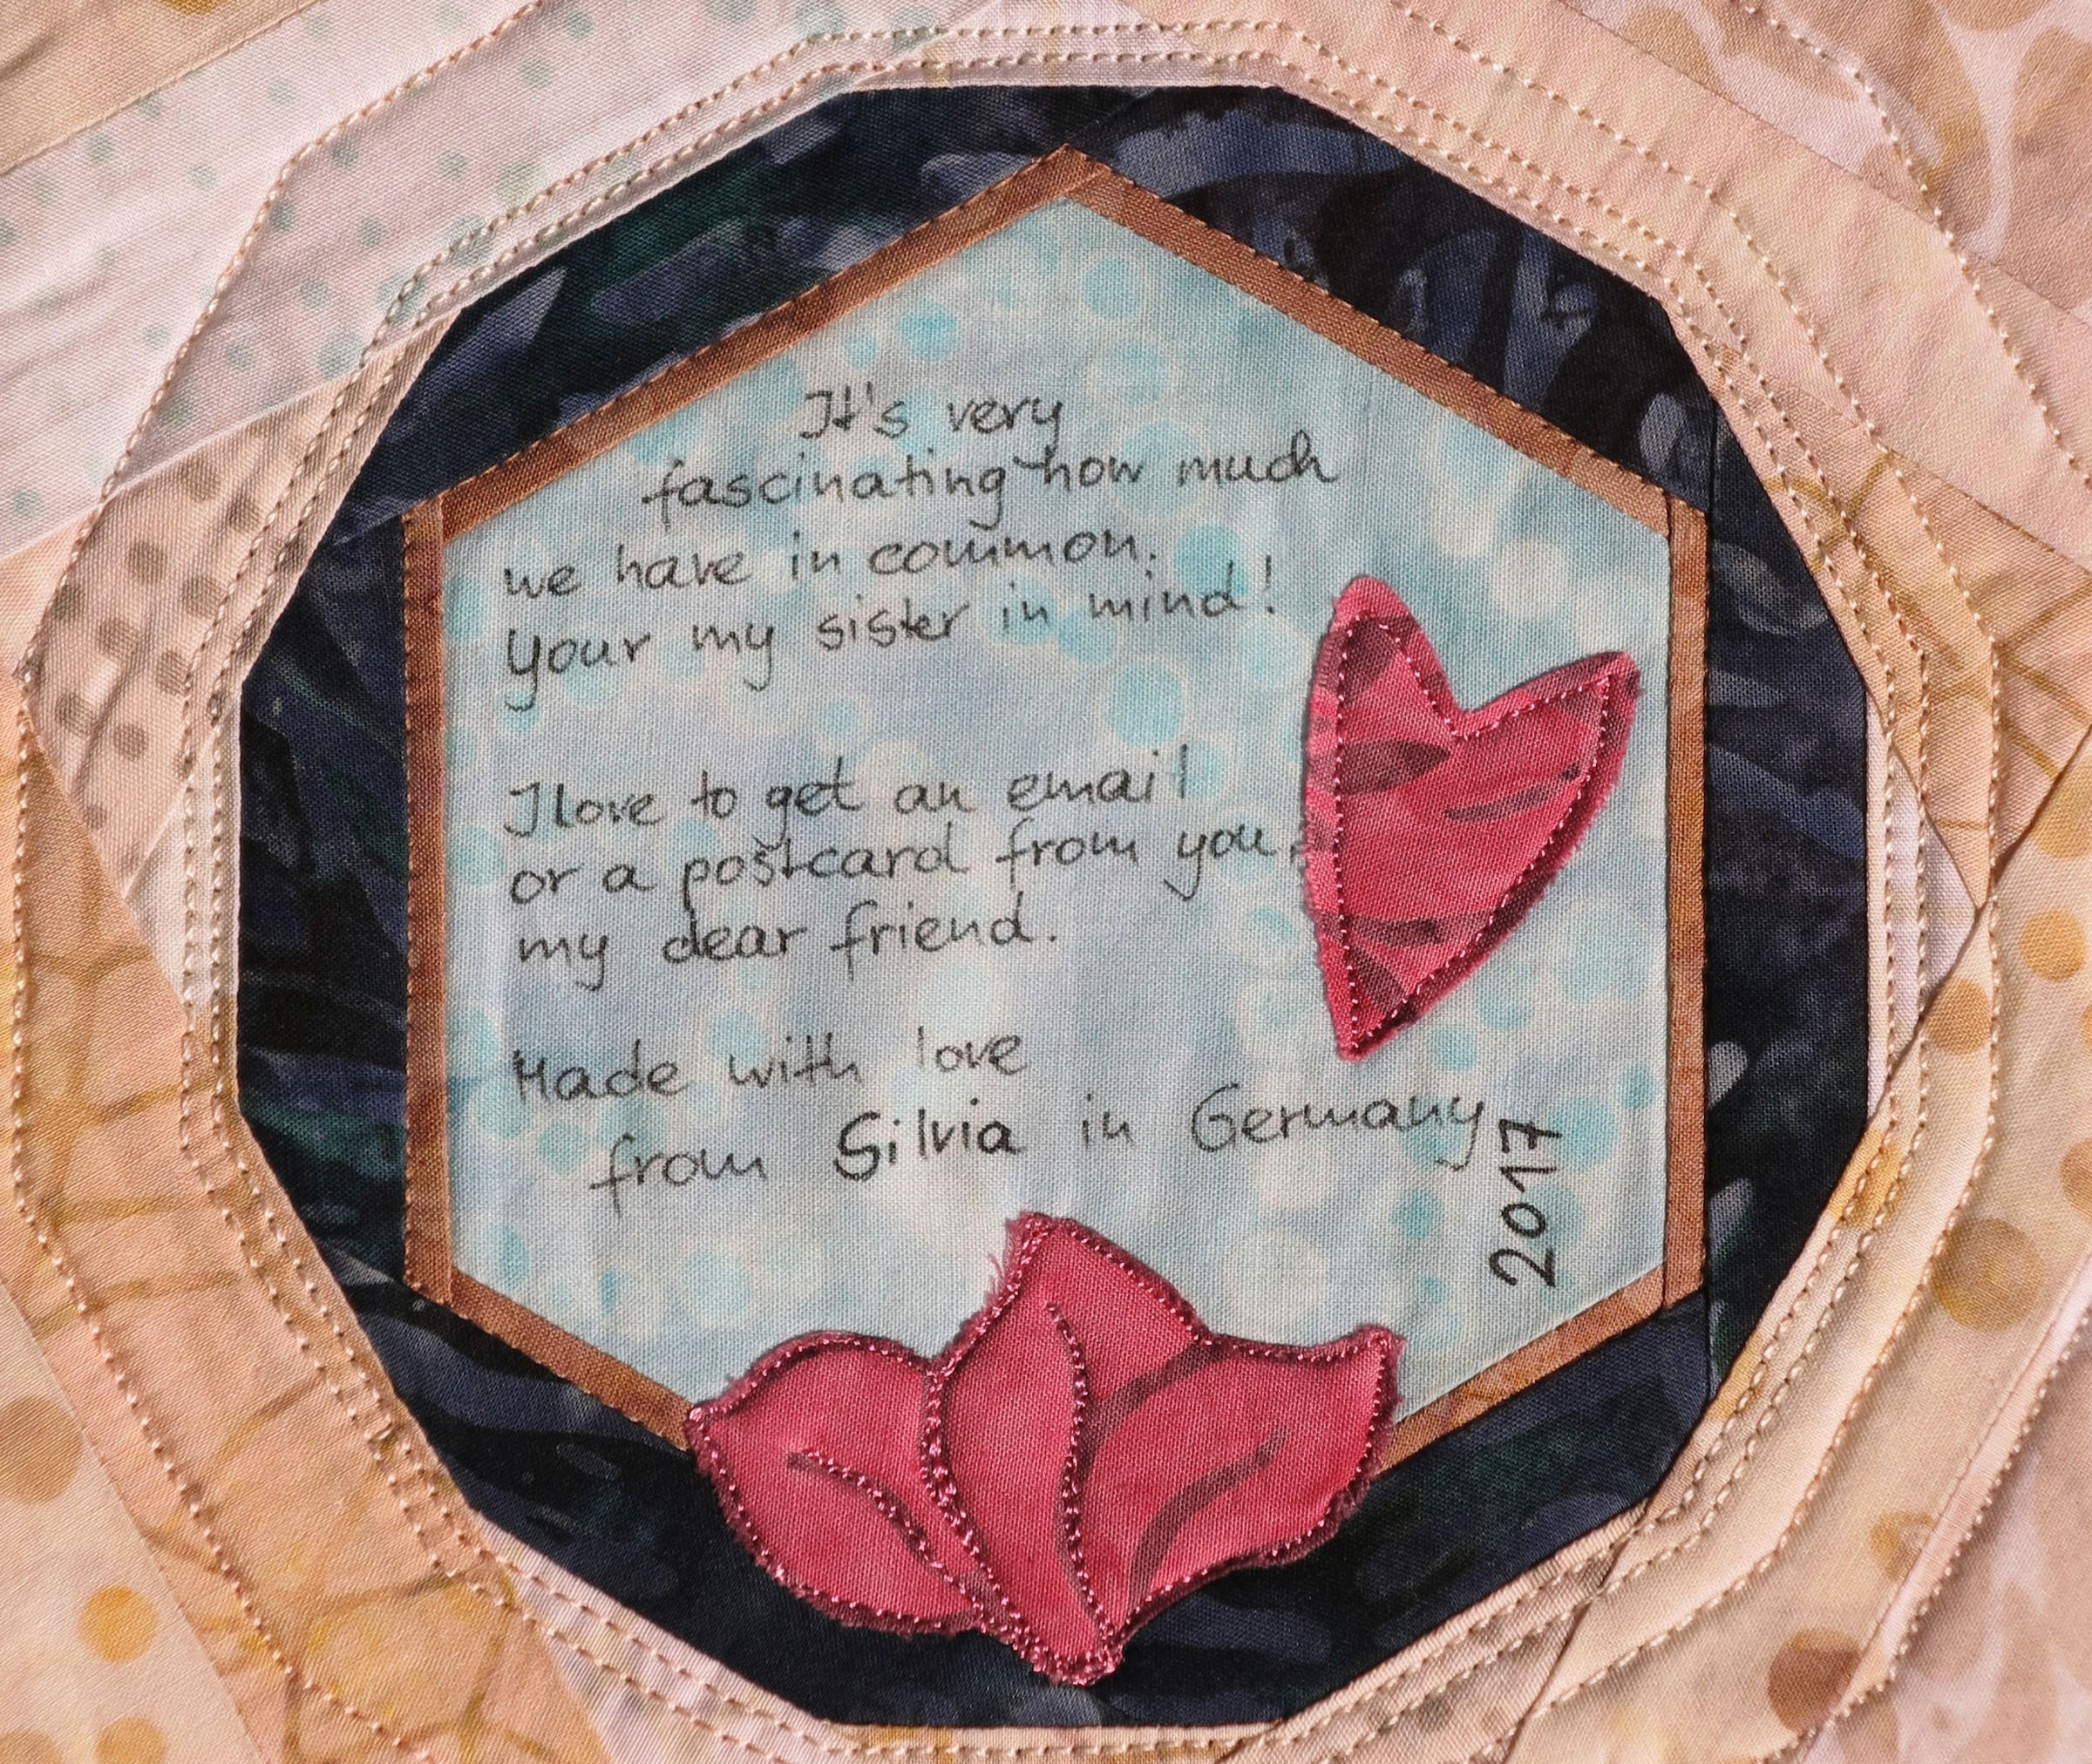 It's very
fascinating how much
we have in common.
Your my sister in mind!
I love to get an email
or a postcard from you,
my dear friend.
Made with love
from Silvia in Germany
2017